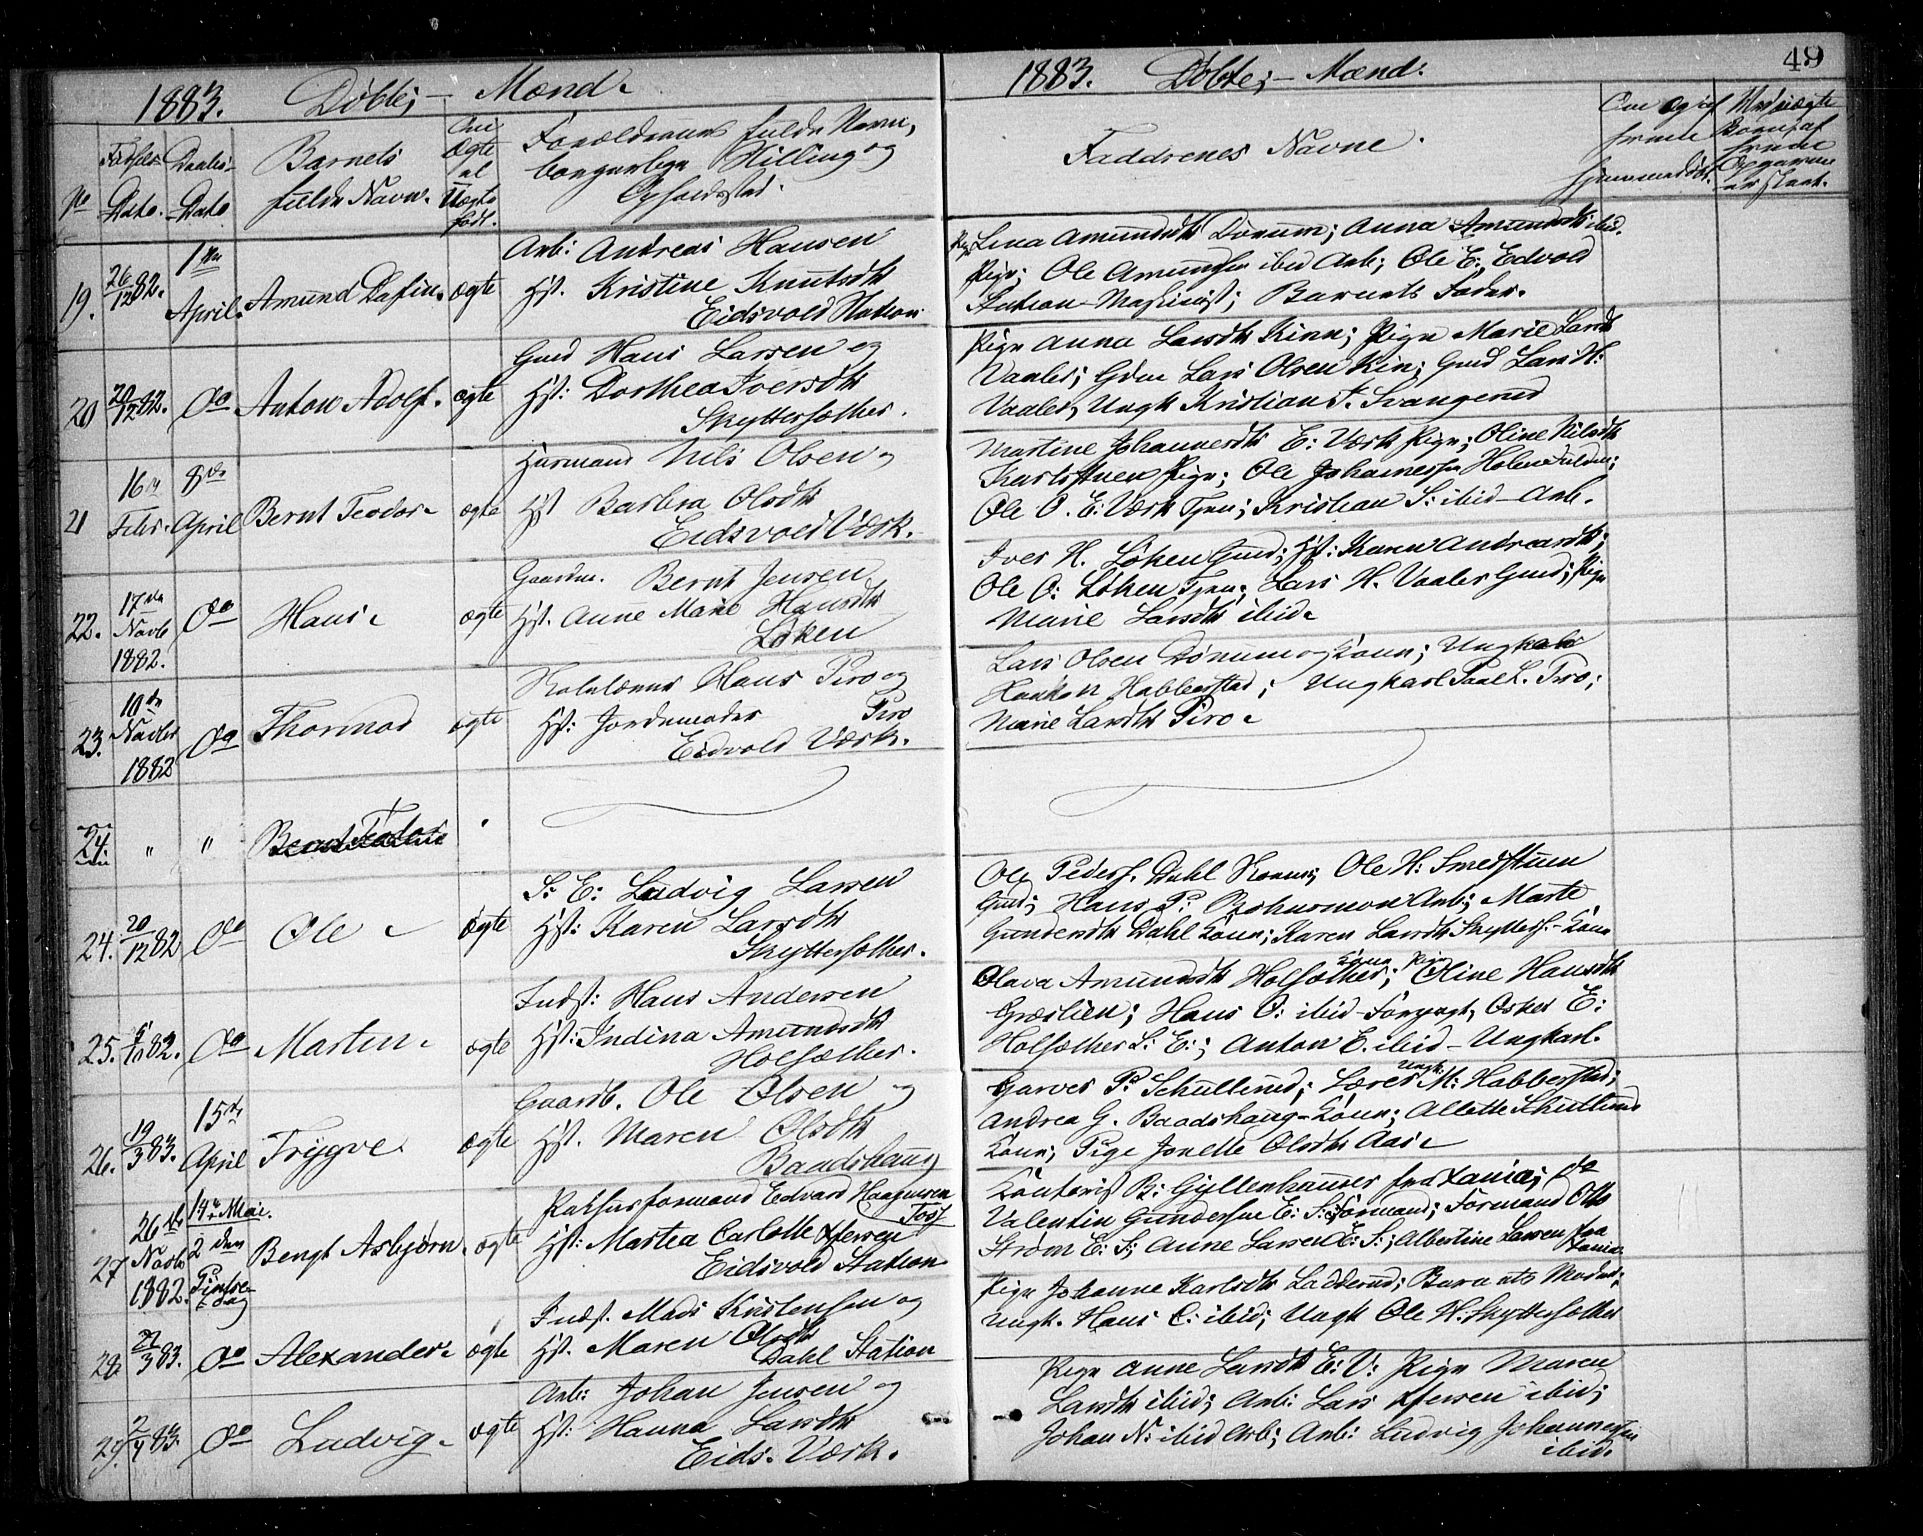 1883. Døbte; – Mænd.
No
Fødsels-
Dato.
Daabs-
Dato
Barnets
fulde Navn.
Om
Ægte
el
Uægte
født.
Forældrenes fulde Navn,
borgerlige Stilling og
Opholdssted.
19. 26/12 82. 1ste April. Amund Dafin. ægte
Arb: Andreas Hansen
Hst. Kristine Knutsdtr
Eidsvold Station
20 20/12 82. Do Anton Adolf. ægte
Gmd Hans Larsen og
Hst: Dorthea Iversdtr
Skyttersæther.
21 16de Febr. 8de April Bernt Teodor. ægte
Husmand Nils Olsen og
Hst Barbra Olsdtr
Eidsvold Værk.
22. 17de Novb 1882. Do Hans. ægte
Gaardm. Bernt Jensen
Hst. Anne Marie Hansdtr
Løken
23. 10de Novbr 1882 Do Thormod ægte
Hans Piro og
Hst: Jordemoder Piro
Eidvold Værk.
24 " " Bernt Teodor
24. 20/12 82 Do Ole ægte
S: E: Ludvig Larsen
Hst: Karen Larsdtr
Skyttersæther.
25. 5/10 82. Do Marten. ægte
Indst: Hans Andersen
Hst: Indina Amundsdtr
Holsæther.
26. 19/3 83. 15de April Trygve. ægte
Gaardb. Ole Olsen og
Hst. Maren Olsdtr
Baadshaug
27 26de Novb 1882. 14de Mai. 2den Pintsedag Bengt Asbjørn. ægte
Edvard Haagensen
Hst: Martea Carlotte Iversen
Eidsvold Station
28. 21/3 83. Do Alexander. ægte
Indst. Mads Kristensen og
Hst. Maren Olsdtr
Dahl Station
29. 2/4 83. Do Ludvig. ægte
Arb: Johan Jensen og
Hst: Hanna Larsdtr
Eids. Værk.
1883. Døbte; – Mænd.
49
Faddrenes Navne.
Om og
Lina Amundsdtr Dønum; Anna Amundsdtr ibid.
Pige; Ole Amundsen ibid Arb; Ole E: Edvold
Station – Maskinist; Barnets Fader.
Pige Anna Larsdtr Kinn; Pige Marie Larsdtr
Vaaler; Gdm Lars Olsen Kin; Gmd Lars H:
Vaaler, Ungk Kristian I. Svangerud
Martine Johannesdtr E: Værk Pige; Oline Nilsdtr
Karlsstuen Pige; Ole Johannessen
Ole O. E: Værk Tjen; Kristian S: ibid – Arb.
Iver H. Løken Gmd; Hst: Karen Andreasdtr;
Ole O: Løken Tjen; Lars H. Vaaler Gmd; Pige
Marie Larsdtr ibid.
Lars Olsen Dønum og Kone; Ungkarl
Haakon Habberstad; Ungkarl Paal L. Piro;
Marie Larsdtr Piro.
Ole Peders. Dahl Ole H: Smedstuen
Gmd; Hans P. Arb; Marte
Gundersdtr Dahl Kone; Karen Larsdtr Skytters. – Kone
Olava Amundsdtr Holsæther; Kone Pige Oline Hansdtr
Græslien; Hans O: ibid – Forpagt, Oskar E:
Holsæther S: E:; Anton E. ibid – Ungkarl.
Garver P: Schullerud; Lærer Ungk. M: Habberstad;
Andrea G. Baadshaug – Kone; Allette Schullerud
Kone; Pige Jonette Olsdtr Aas.
Kontorist B: Gyllenhauser fra Xania; do
Valentin Gundersen E: S: Formand; Formand Otto
Strøm E: S; Anne Larsen E: S:; Albertine Larsen fra Xania
Pige Johanne Karlsdtr Ladderud; Barnets Moder;
Ungk. Hans C: ibid; Ungk Ole H: Skyttersæther
Pige Anne Larsdtr E: V: Pige Maren
Larsdtr ibid; Arb: Lars Iversen ibid;
Johan N: ibid Arb; Arb: Ludvig Johannessen
ibid.